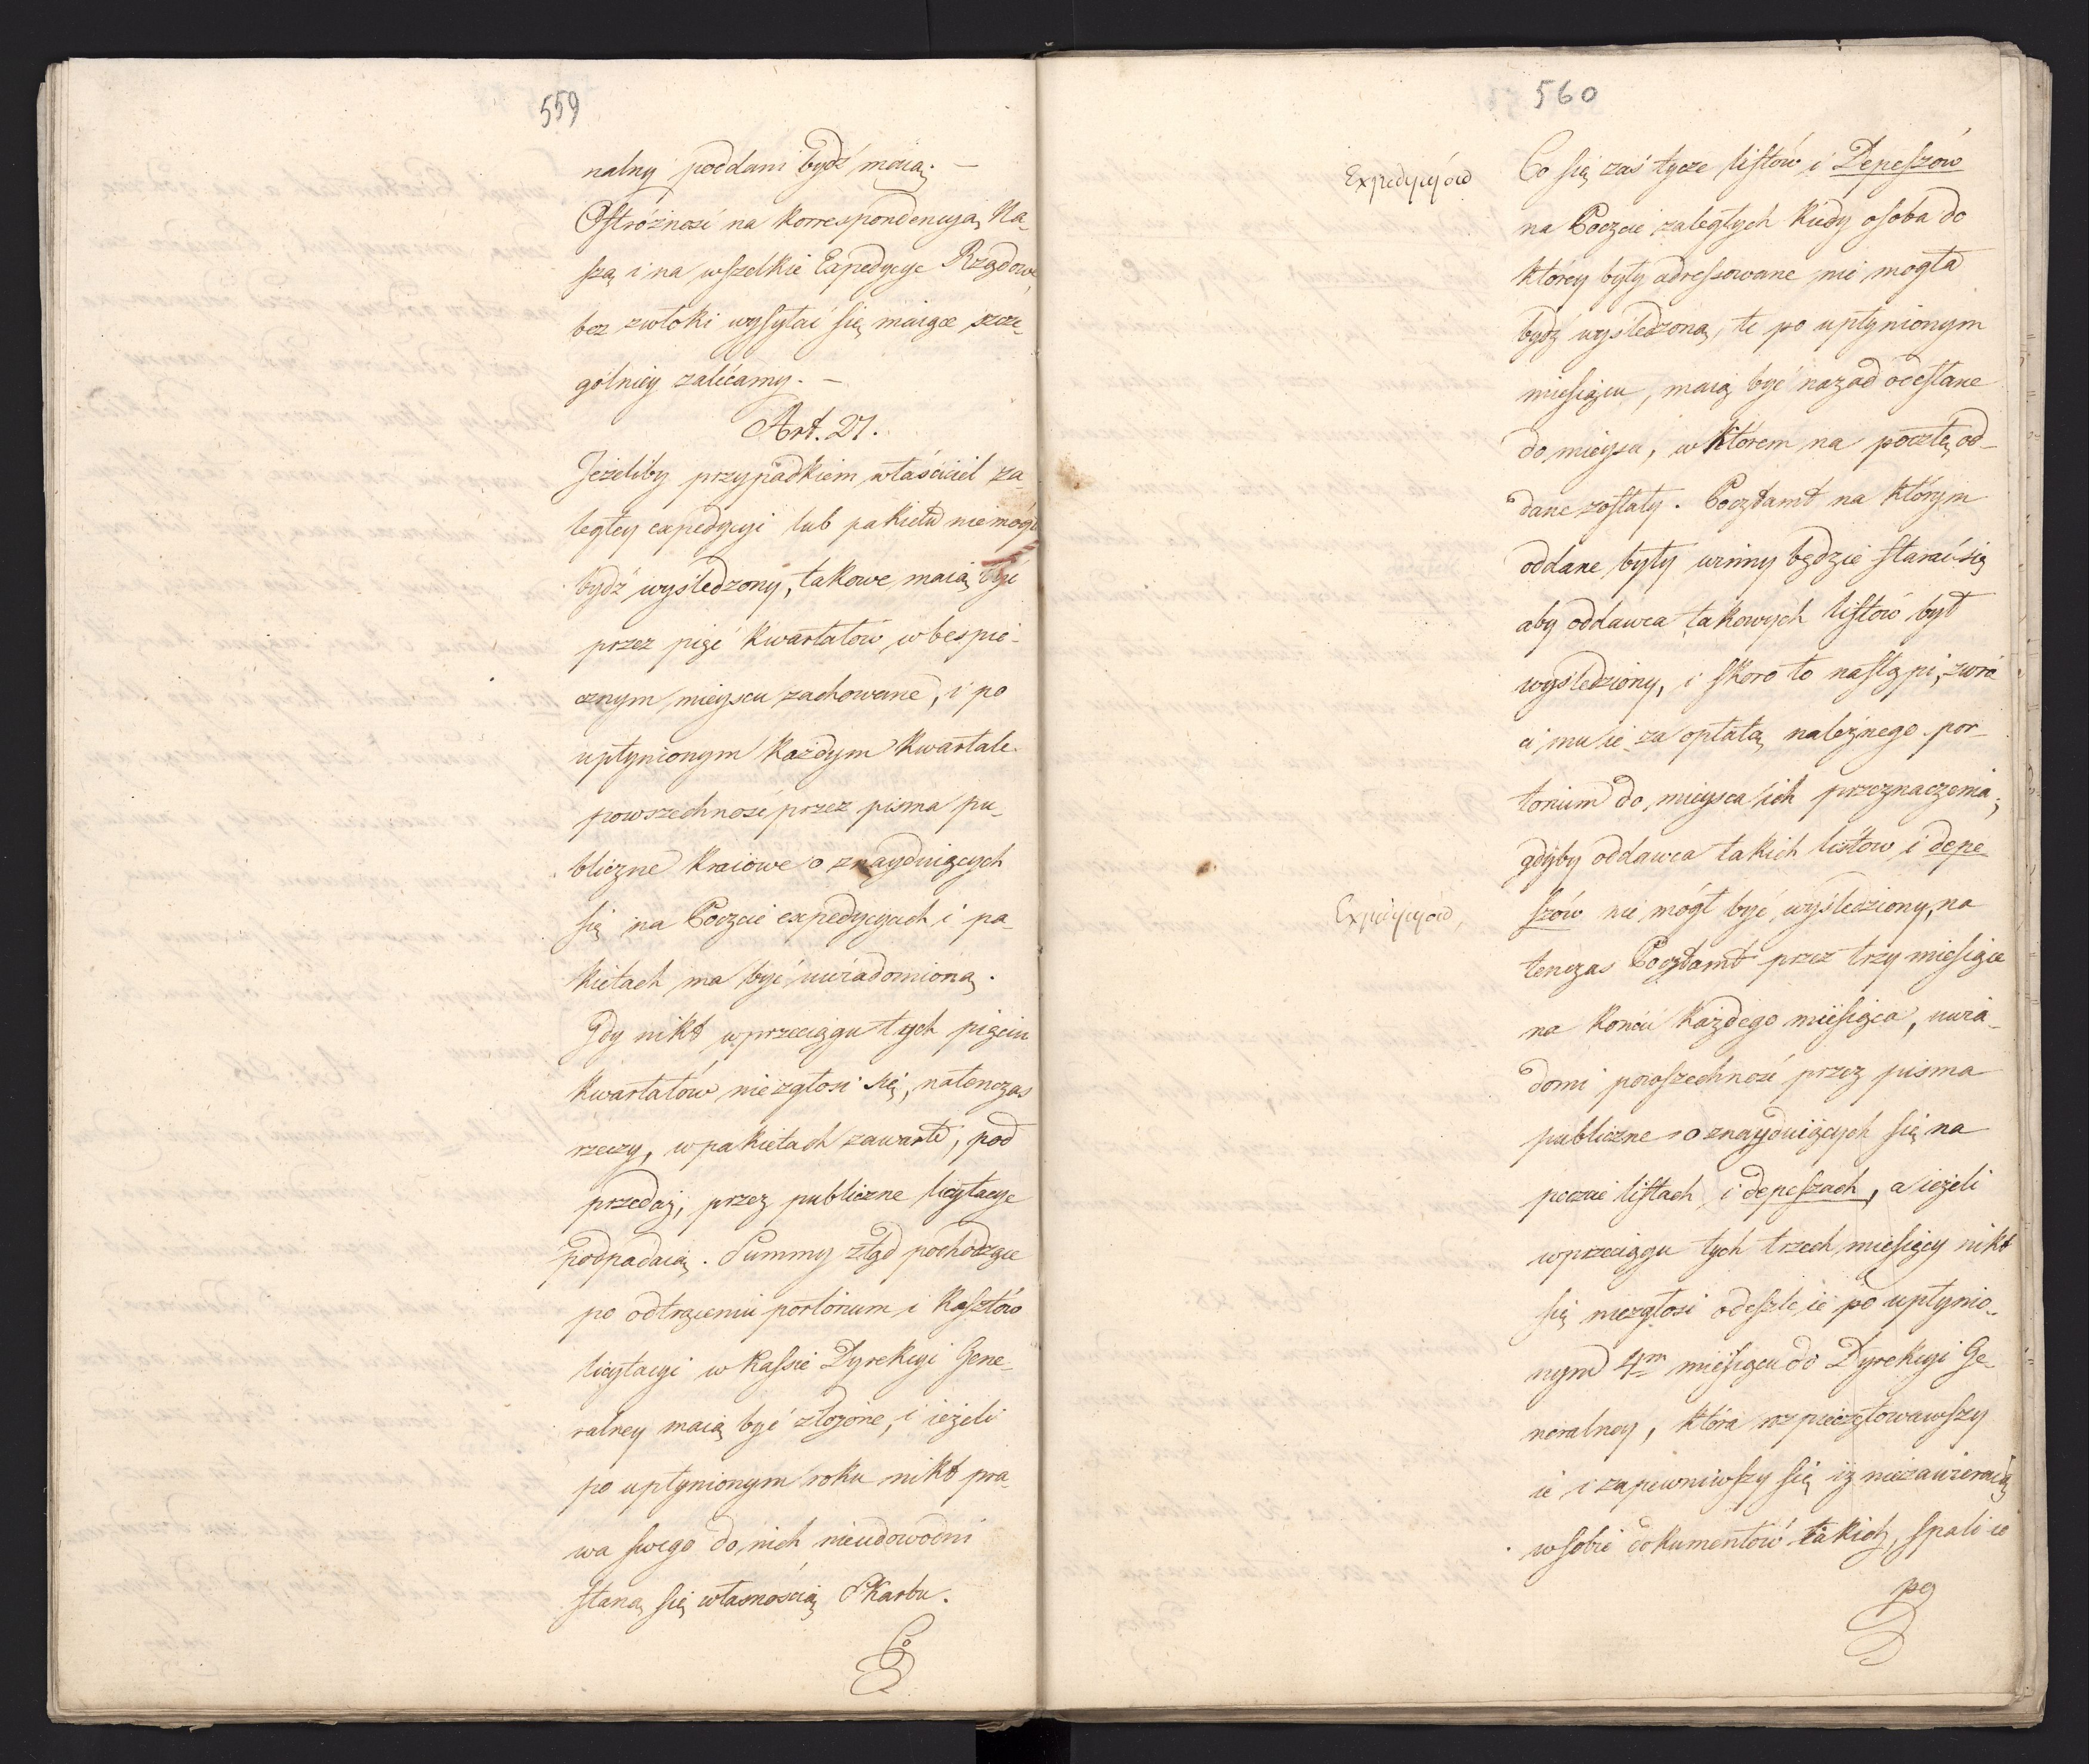 559
nalny poddani bydź maią. –
Ostróżność na korrespondencyą Na-
szą i na wszelkie Expedycye Rządowe,
bez zwłoki wysyłać się maiące szcze-
gólniey zalécamy. –
Art. 27.
Jeżeliby przypadkiem właściciel za-
ległey expedycyi lub pakietu nie mógł
bydź wyśledzony, takowe maią być
przez pięć kwartałów w bespie-
cznym mieyscu zachowane, i po
upłynionym każdym kwartale
powszechność przez pisma pu-
bliczne kraiowe o znayduiących
się na Poczcie expedycyach i pa-
kietach ma być uwiadomioną.
Gdy nikt w przeciągu tych pięciu
kwartałów niezgłosi się, natenczas
rzeczy, w pakietach zawarte, pod
przedaż, przez publiczne licytacye
podpadaią. Summy ztąd pochodzące
po odtrąceniu portorium i kosztów
licytacyi w Kassie Dyrekcyi Gene-
ralney maią być złożone, i ieżeli
po upłynionym roku nikt pra-
wa swego do nich nieudowodni
staną się własnością Skarbu.
Co
560
Expedycyów
Co się zaś tycze listów i Depeszów
na Poczcie zaległych kiedy osoba do
którey były adressowane nie mogła
bydź wyśledzoną, te po upłynionym
miesiącu, maią być nazad odesłane
do mieysca, w którem na pocztę od-
dane zostały. Pocztamt na którym
oddane były winny będzie starać się
aby oddawca takowych listów był
wyśledziony, i skoro to nastąpi, zwró
ci mu ie za opłatą należnego por-
torium do mieysca ich przeznaczenia;
gdyby oddawca takich listow i depe
Expedycyów,
szów nie mógł być wyśledziony, na
tenczas Pocztamt przez trzy miesiące
na końcu każdego miesiąca, uwia-
domi powszechność przez pisma
publiczne o znayduiących się na
poczcie listach i depeszach, a ieżeli
w przeciągu tych trzech miesięcy nikt
się niezgłosi odeszle ie po upłynio-
nym 4m miesiącu do Dyrekcyi Ge-
neralney, która rozpieczętowawszy
ie i zapewniwszy się iż niezawieraią
w sobie dokumentów takich, spali ie
po